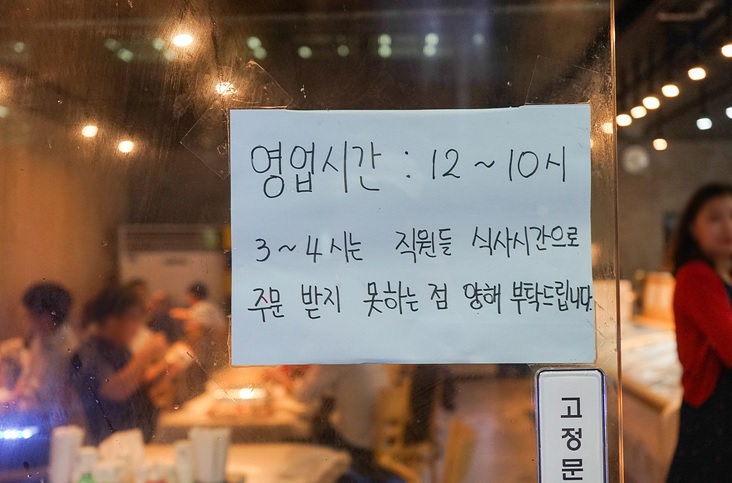 영업시간 : 12 ~ 10시
3 ~ 4시는 직원들 식사시간으로
주문 받지 못하는 점 양해 부탁드립니다.
고정문